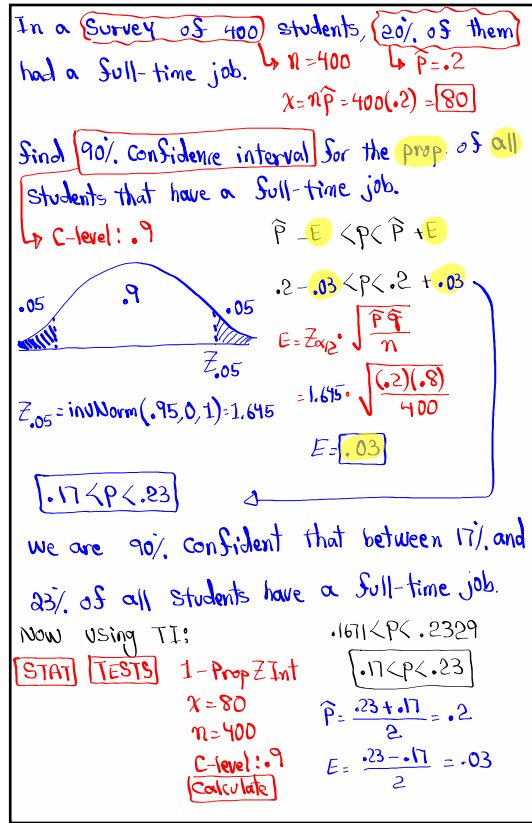 In a Survey of 400 students, 20% of them
↳ n=400 ↳ p̂=.2
had a full-time job.
x=np̂=400(.2)=80
find 90% confidence interval for the prop. of all
students that have a full-time job.
↳ C-level: .9
p̂ - E < p < p̂ + E
.2 - .03 < p < .2 + .03
.05 .9 .05
Z.05
E = Zα/2 · √(p̂q̂/n)
Z.05 = invNorm(.95,0,1) = 1.645
= 1.645 · √((.2)(.8)/400)
E = .03
.17 < p < .23
we are 90% confident that between 17% and
23% of all students have a full-time job.
Now using TI:
STAT TESTS 1-PropZInt
x=80
n=400
C-level: .9
Calculate
.1671 < p < .2329
.17 < p < .23
p̂ = (.23+.17)/2 = .2
E = (.23-.17)/2 = .03